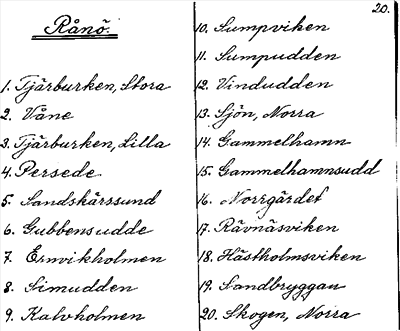 20.
Rånö.
1. Tjärburken, Stora
2. Våne
3. Tjärburken, Lilla
4. Persede
5. Sandskärssund
6. Gubbensudde
7. Ernvikholmen
8. Simudden
9. Kalvholmen
10. Sumpviken
11. Sumpudden
12. Vindudden
13. Sjön, Norra
14. Gammelhamn
15. Gammelhamnsudd
16. Norrgärdet
17. Rävnäsviken
18. Hästholmsviken
19. Sandbryggan
20. Skogen, Norra